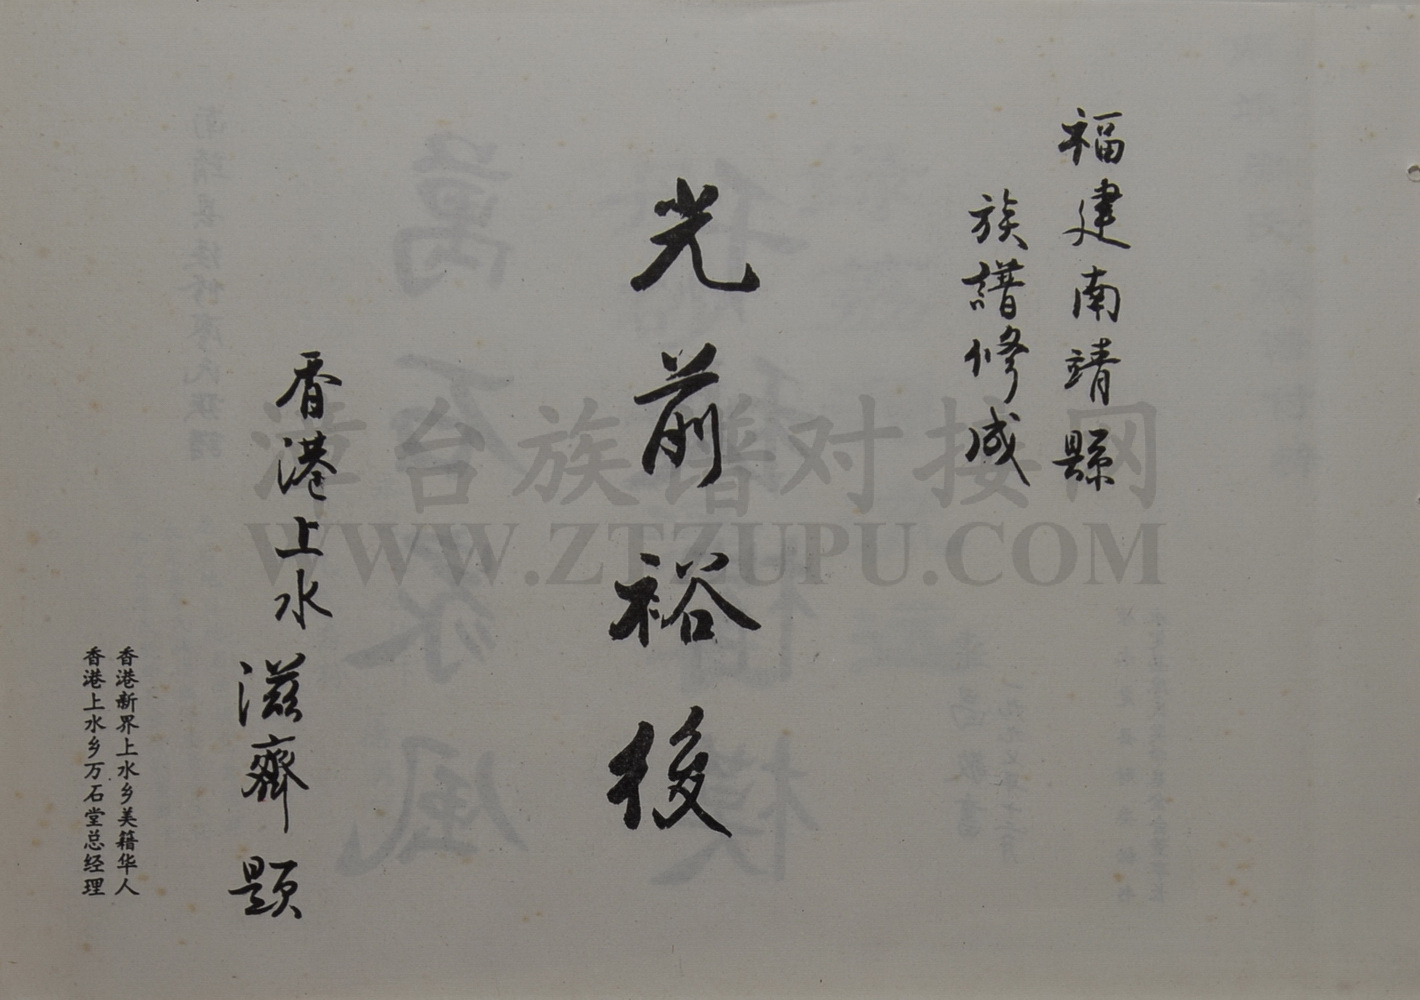 福建南靖縣
族譜修成
光前裕後
香港上水
滋齋題
香港新界上水乡美籍华人
香港上水乡万石堂总经理
漳台族谱对接网
WWW.ZTZUPU.COM